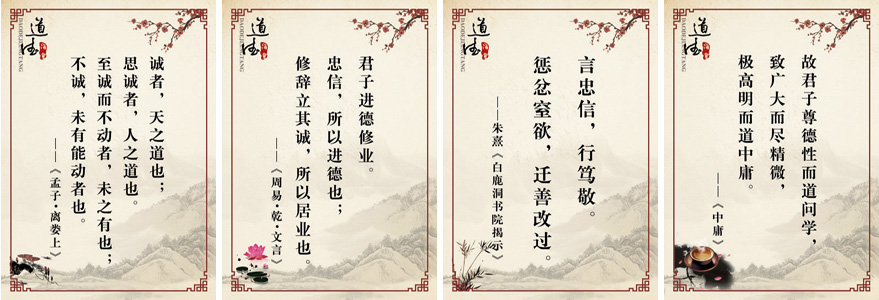 道德
诚者，天之道也；
思诚者，人之道也。
至诚而不动者，未之有也；
不诚，未有能动者也。
——《孟子·离娄上》
道德
君子进德修业。
忠信，所以进德也；
修辞立其诚，所以居业也。
——《周易·乾·文言》
道德
言忠信，行笃敬。
惩忿窒欲，迁善改过。
——朱熹《白鹿洞书院揭示》
道德
故君子尊德性而道问学，
致广大而尽精微，
极高明而道中庸。
——《中庸》